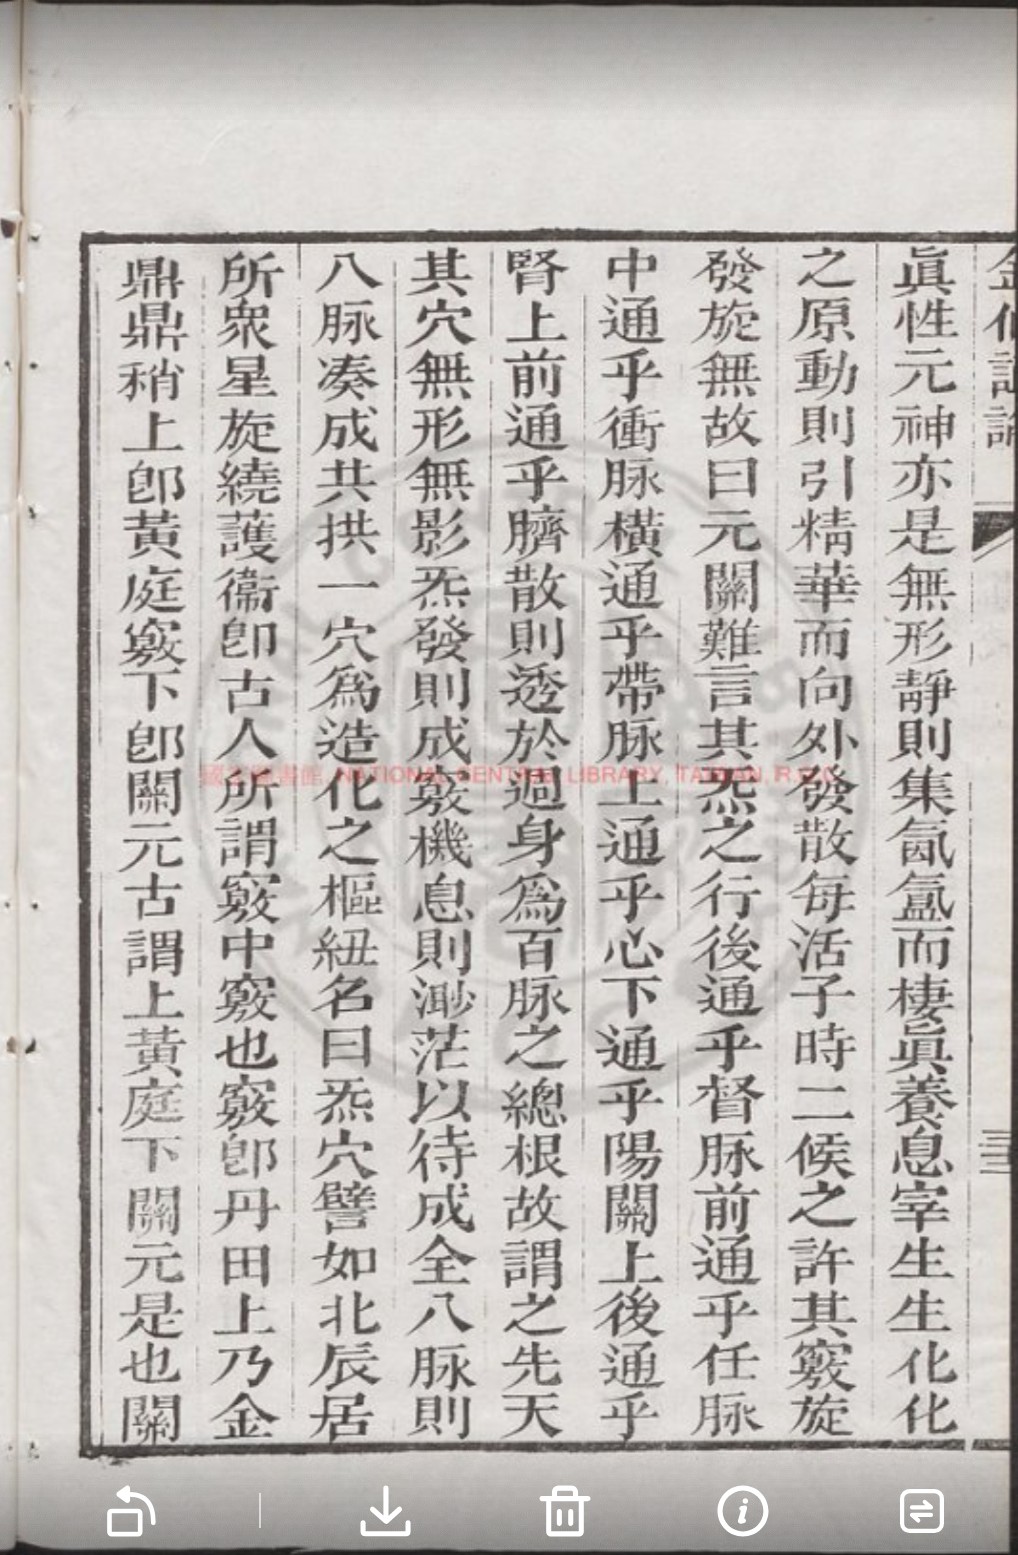 真性元神亦是無形靜則集氤氳而棲眞養息宰生生化化
之原動則引精華而向外發散每活子時二候之許其竅旋
發旋無故曰元關難言其炁之行後通乎督脉前通乎任脉
中通乎衝脉橫通乎帶脉上通乎心下通乎陽關上後通乎
腎上前通乎臍散則透於週身爲百脉之總根故謂之先天
其穴無形無影炁發則成竅機息則渺茫以待成全八脉則
八脉凑成共拱一穴爲造化之樞紐名曰炁穴譬如北辰居
所衆星旋繞護衞卽古人所謂竅中竅也竅卽丹田上乃金
鼎鼎稍上卽黃庭竅下卽關元古謂上黃庭下關元是也關
三三
國家圖書館 NATIONAL CENTRAL LIBRARY, TAIWAN, R.O.C.